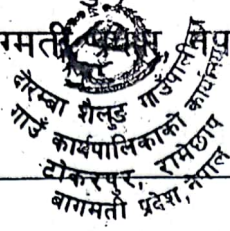 ग्मती प्रदेश, नेप
दोरम्बा शैलुङ गाउँपालिका
गाउँ कार्यपालिकाको कार्यालय
टोकरपुर, रामेछाप
बागमती प्रदेश, नेपाल